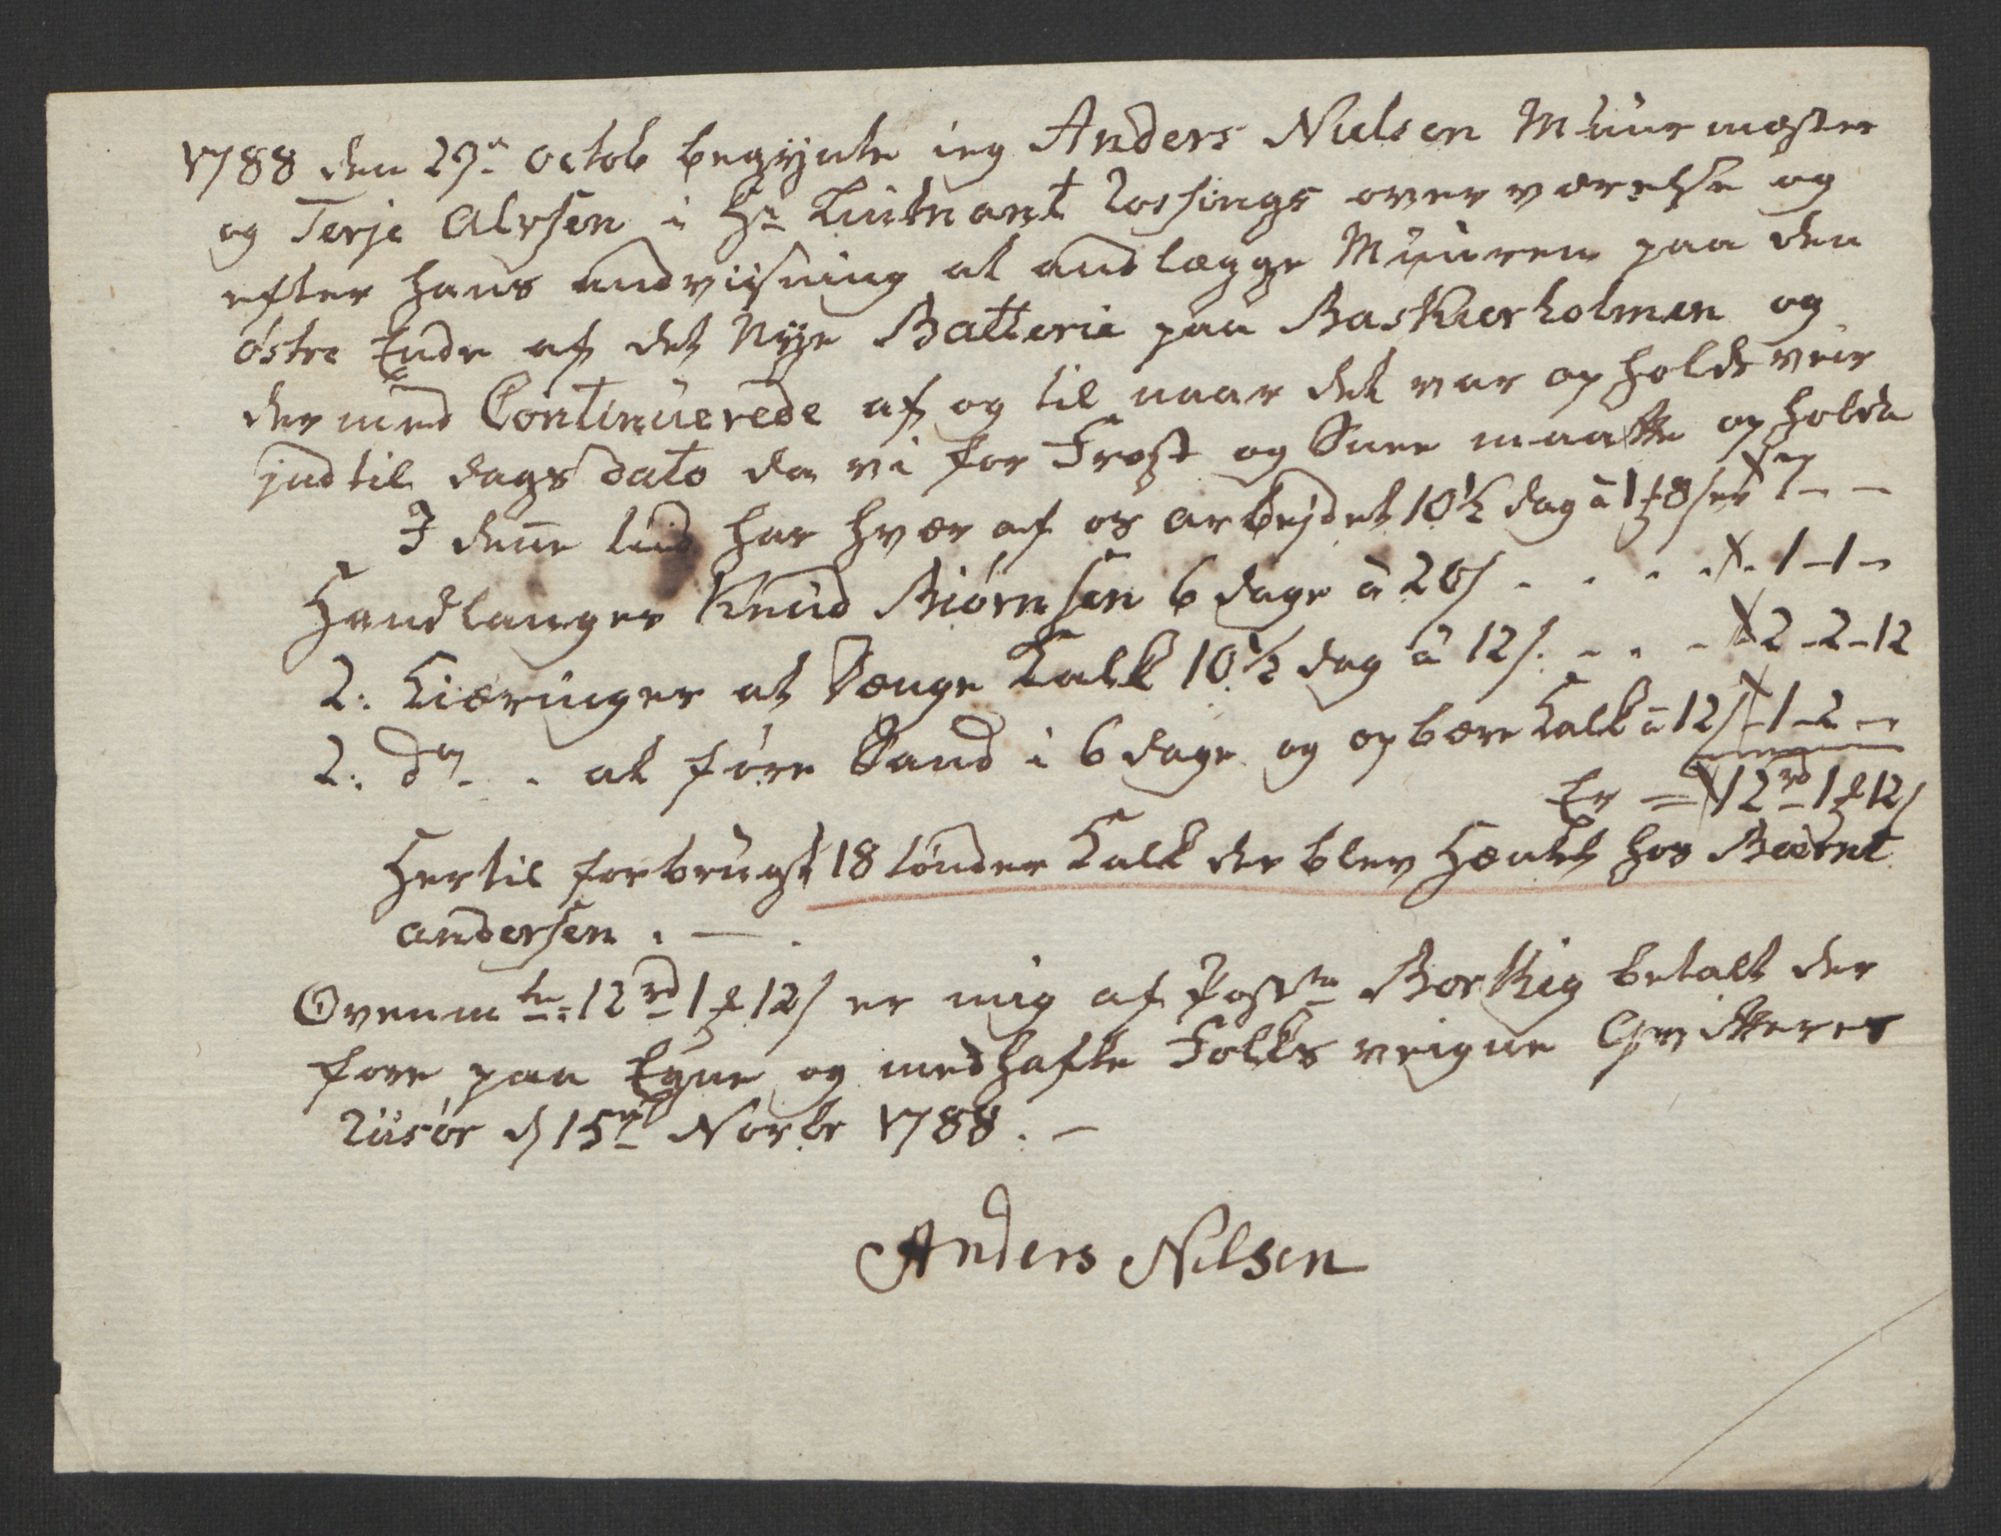 1788 den 29n octob begynte ieg Anders Nielsen Muurmæster
og Terje Alvsen i Hr Luitnant Rossings overværelse og
efter hans andviisning at andlægge Muuren paa den
østre Ende af det Nye Batterie paa Baskierholmen og
dermed Continuerede af og til naar det var opholdsveir
indtil dags dato da vi for Frost og Snee maatte opholde
I denne tiid har hver af os arbejdet 10½ dag à 1 # 8 s er 7 - -
Handlanger Knud Biørnsen 6 dage à 20 s - . . . . 1 - 1 -
2: Kiæringer at Slænge Kalk 10½ dag à 12 s. - . . - 2 - 2 - 12
2: do - . at føre Sand i 6 dage og opbære Kalk à 12 s - 1 - 2 -
Er = 12 rd 1 # 12 s
Hertil forbrugt 18 tønder Kalk der blev Hæntet hos Berent
andersen . — .
Ovenmte: 12 rd 1 # 12 s er mig af Postm Borthig betalt der
fore paa Egne og medhafte Folks veigne Qvitteres
Riisør d 15de Novbr 1788 . —
Anders Nilsen